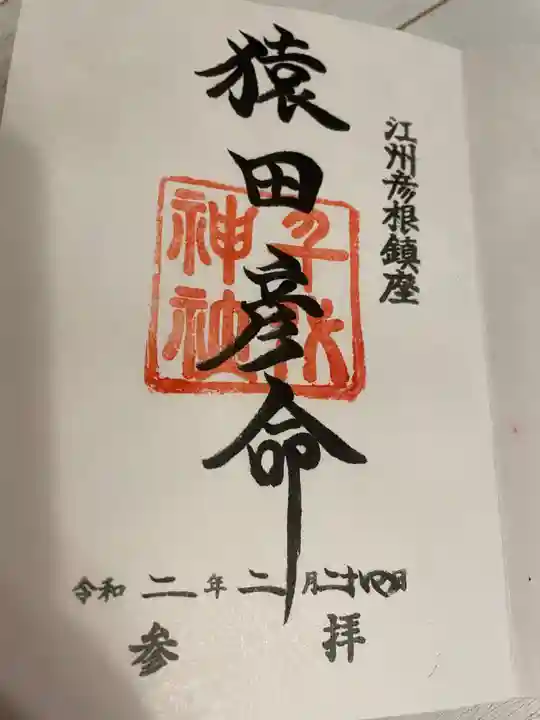 江州彦根鎮座
猿田彦命
神社
令和二年二月二十四日
参拝